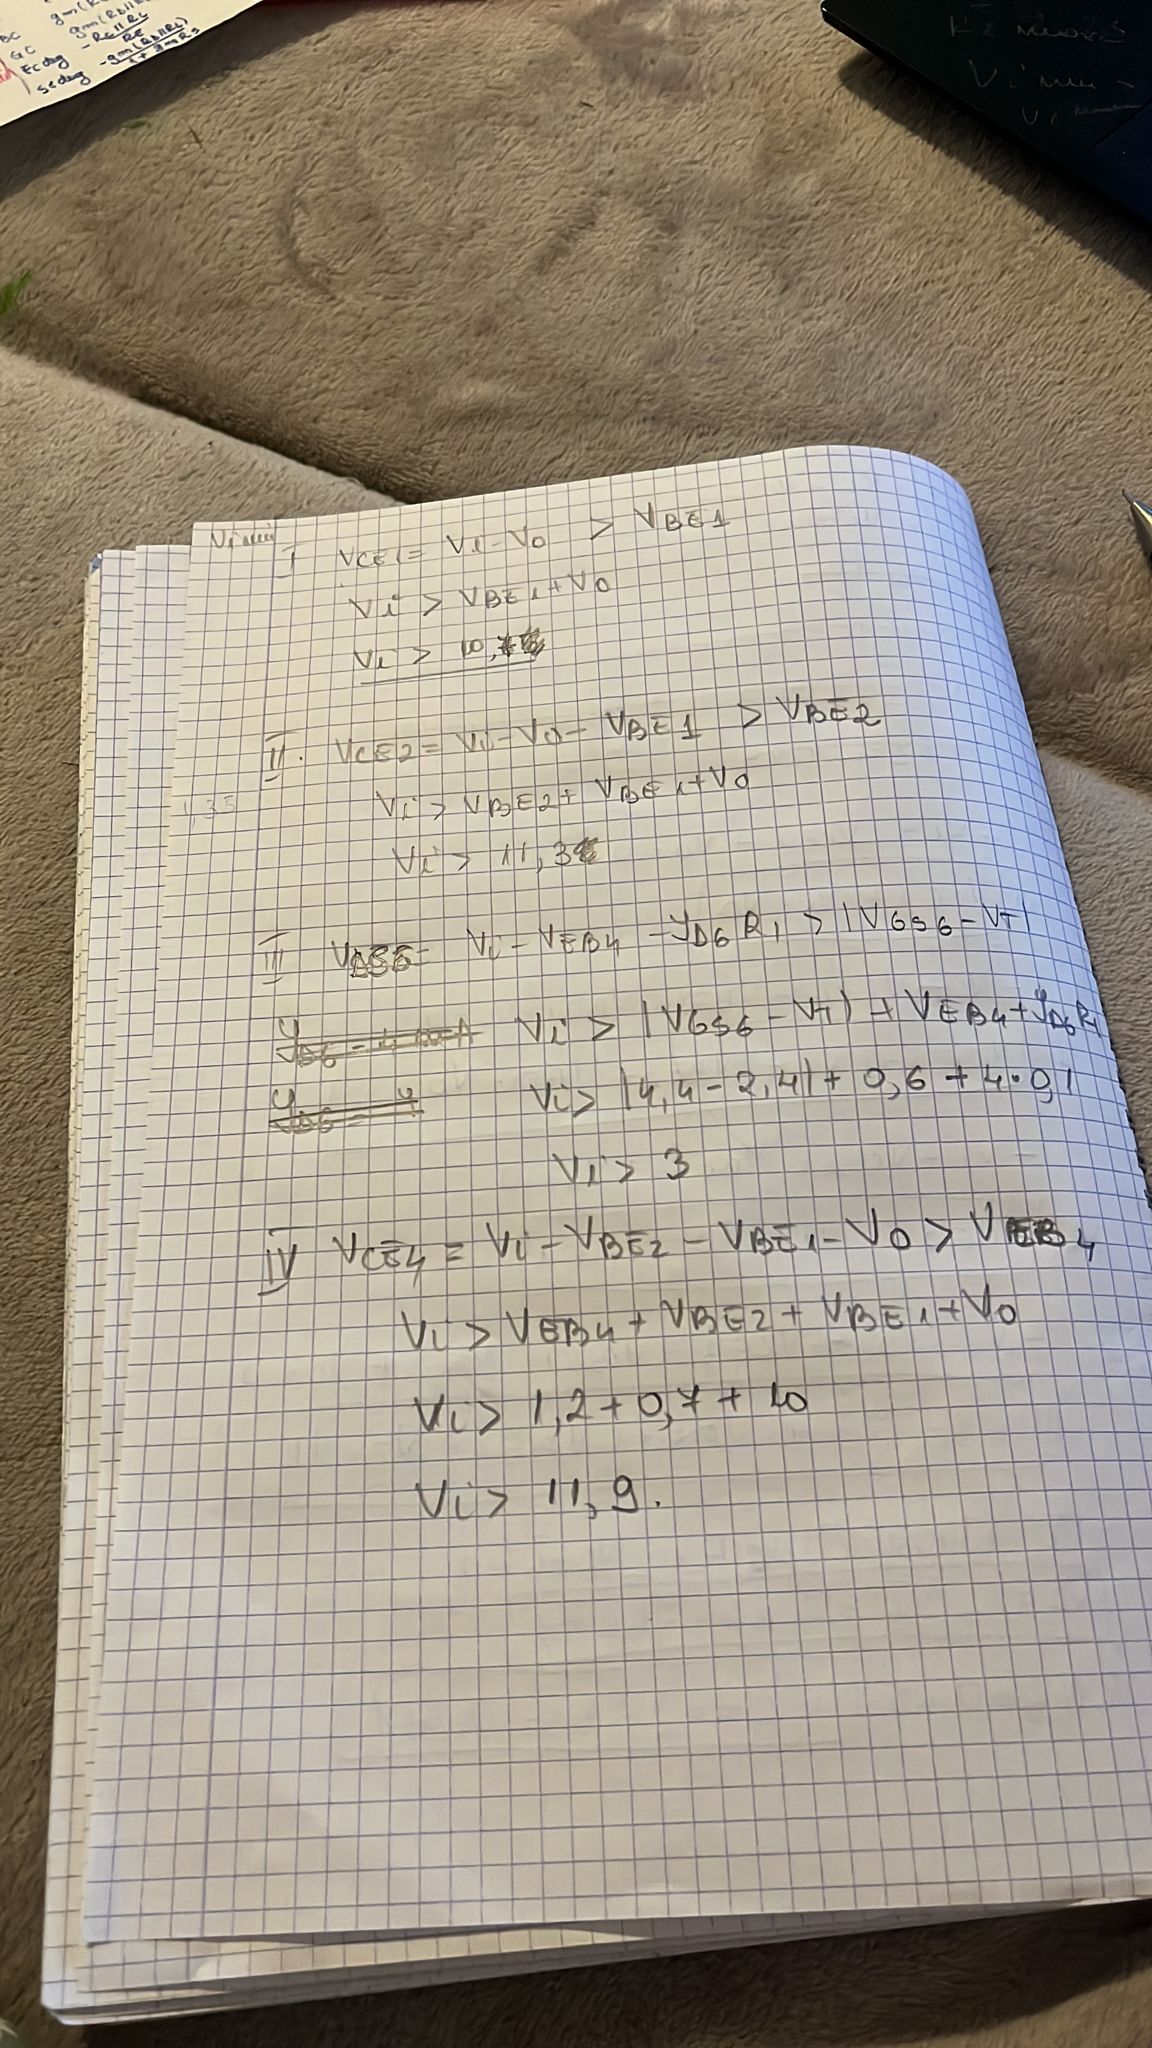 BC
GC gm(RD||RL)
Ecdeg -RC||RL
RE
Scdeg -gm(RD||RL)
1+gmRS
Vi
Vi min
I VCE1 = Vi - VO > VBE1
Vi > VBE1 + VO
Vi > 10,7
II. VCE2 = Vi - VO - VBE1 > VBE2
1,35 Vi > VBE2 + VBE1 + VO
Vi > 11,3
III Vi - VEB4 - ID6 R1 > |VGS6 - VT|
Vi > |VGS6 - VT| + VEB4 + ID6 R1
Vi > |4,4 - 2,4| + 0,6 + 4·0,1
Vi > 3
IV VCE4 = Vi - VBE2 - VBE1 - VO > VEB4
Vi > VEB4 + VBE2 + VBE1 + VO
Vi > 1,2 + 0,7 + 10
Vi > 11,9.